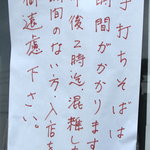 手打ちそばは
時間がかかります
午後2時迄、混雑し
時間のない方、入店を
御遠慮下さい。